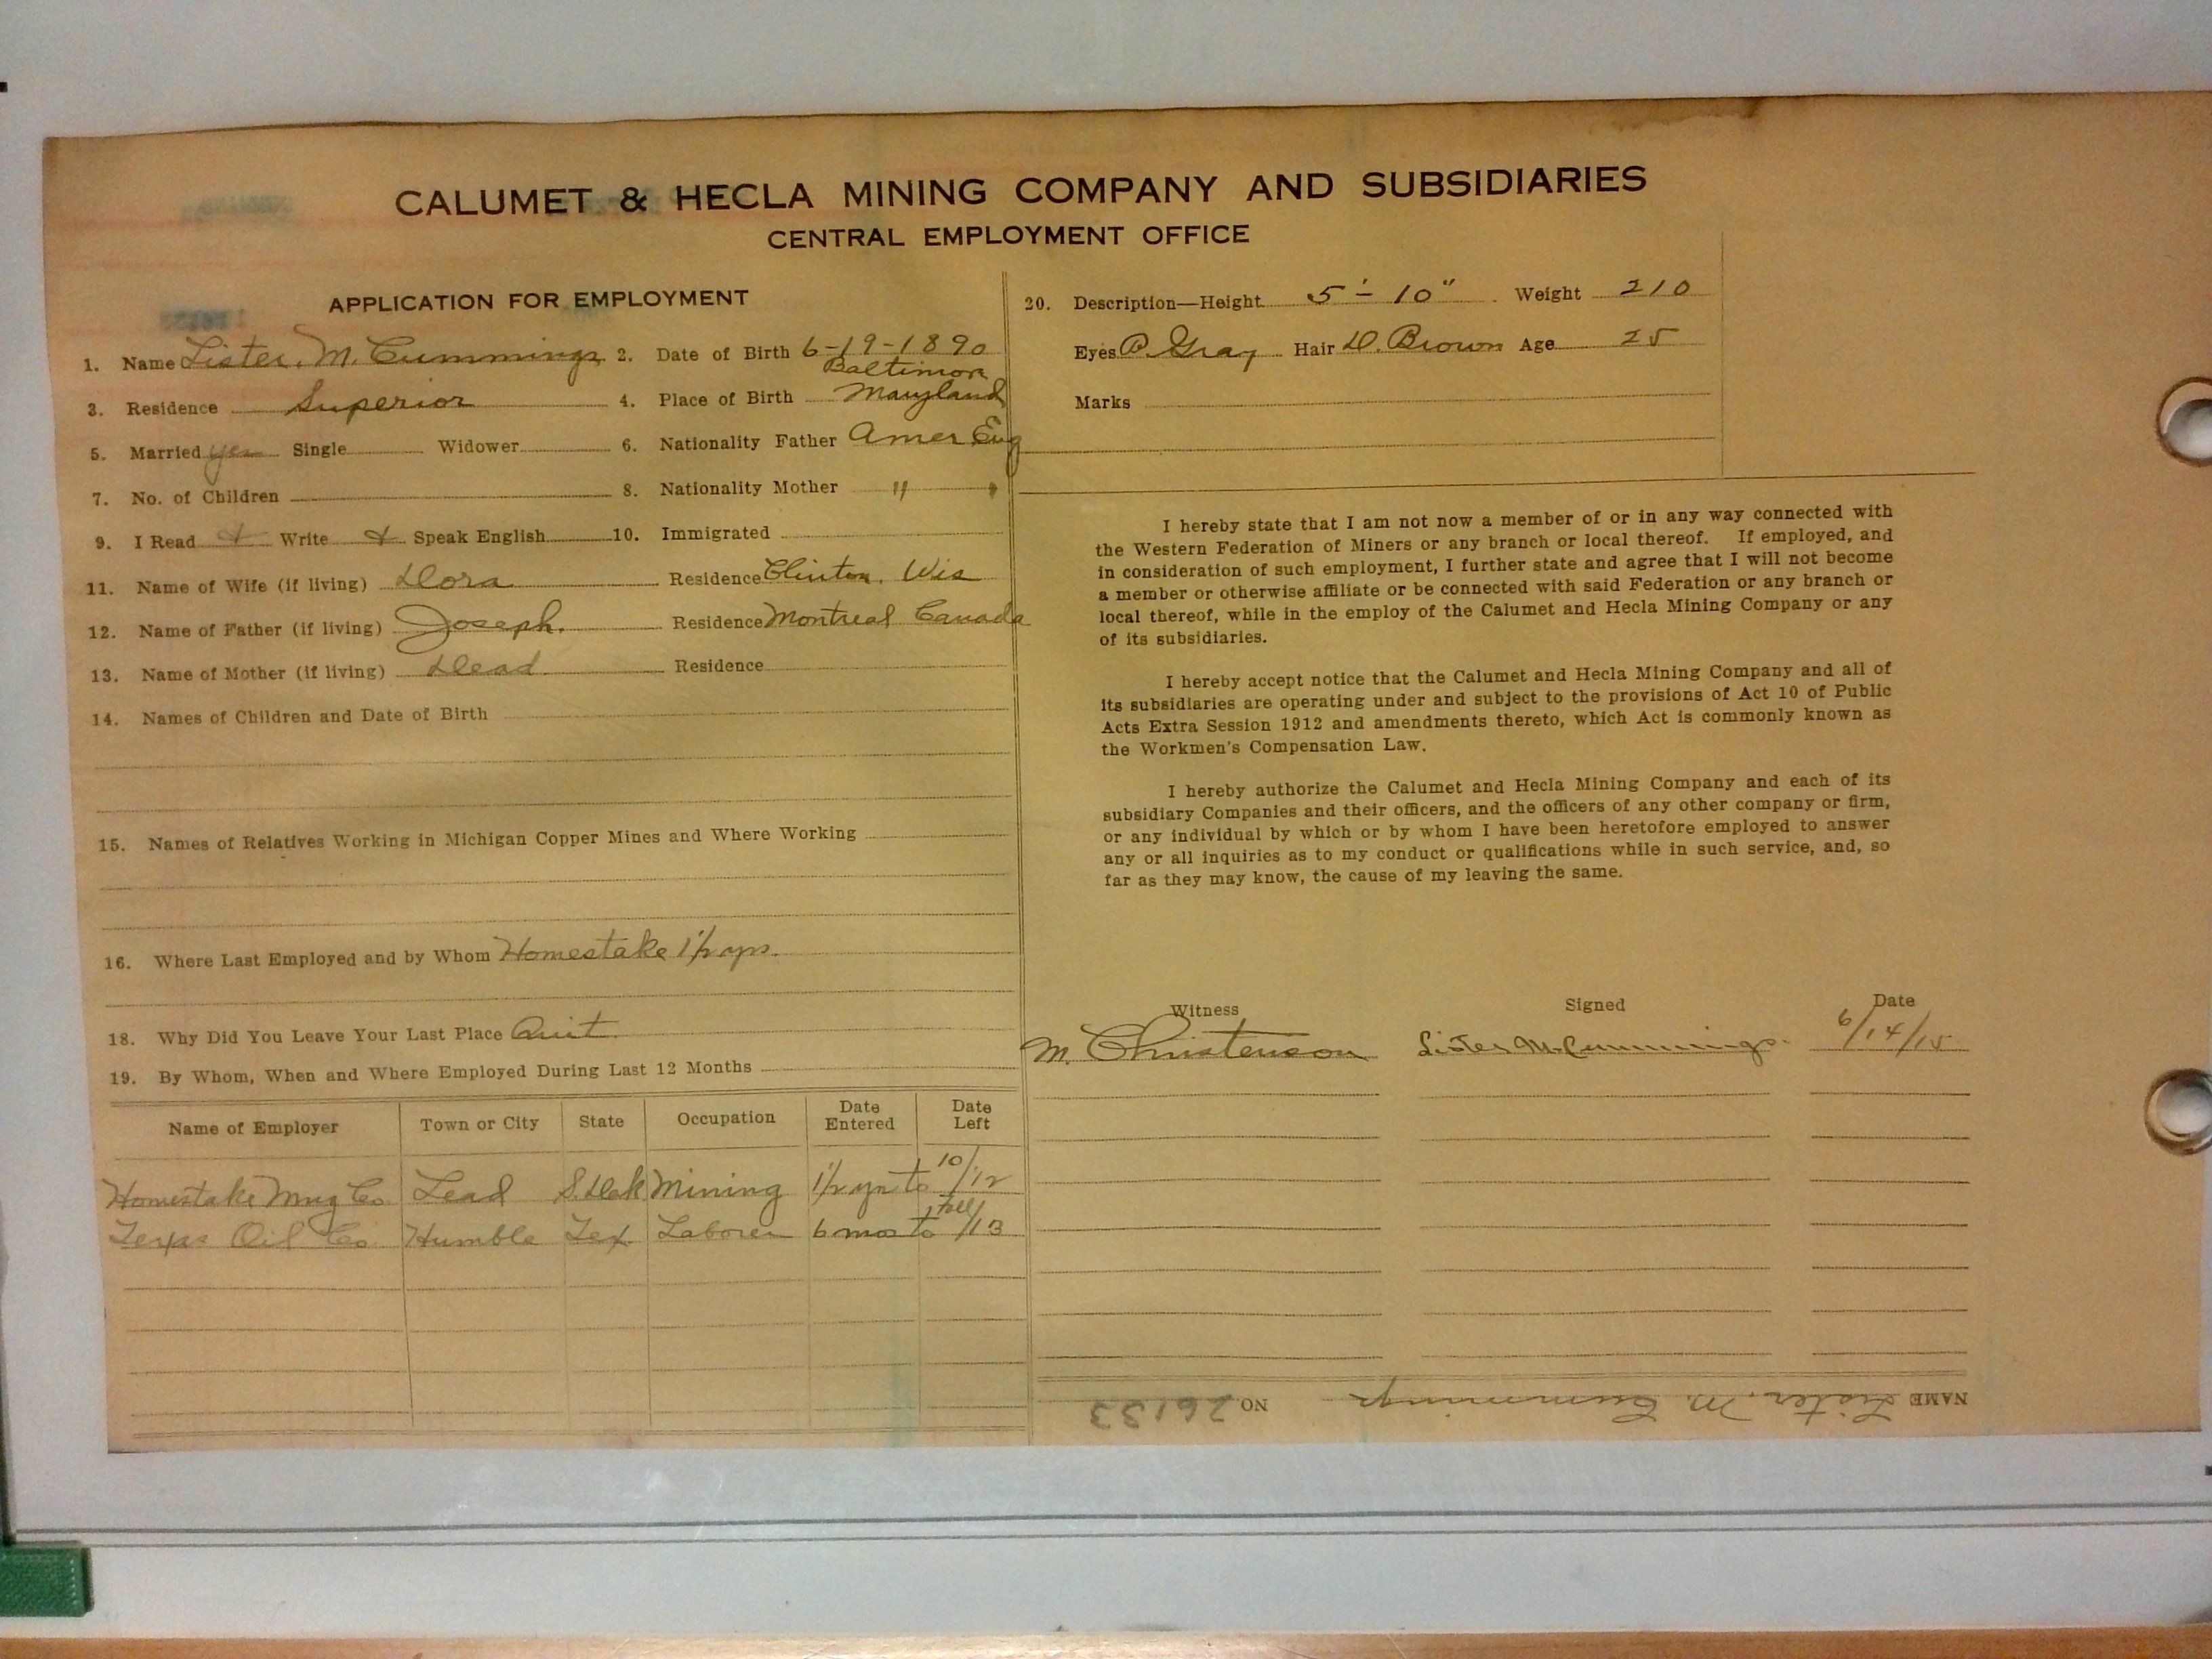 CALUMET & HECLA MINING COMPANY AND SUBSIDIARIES
CENTRAL EMPLOYMENT OFFICE
APPLICATION FOR EMPLOYMENT
1. Name Lister. M. Cummings 2. Date of Birth 6-19-1890
3. Residence Superior 4. Place of Birth Baltimore Maryland
5. Married yes Single Widower 6. Nationality Father Amer Eng
7. No. of Children 8. Nationality Mother " "
9. I Read Write Speak English 10. Immigrated
11. Name of Wife (if living) Dora Residence Clinton. Wis
12. Name of Father (if living) Joseph. Residence Montreal Canada
13. Name of Mother (if living) Dead Residence
14. Names of Children and Date of Birth
15. Names of Relatives Working in Michigan Copper Mines and Where Working
16. Where Last Employed and by Whom Homestake 1½ yrs.
18. Why Did You Leave Your Last Place Quit
19. By Whom, When and Where Employed During Last 12 Months
Name of Employer Town or City State Occupation Date Entered Date Left
Homestake Mng Co Lead S. Dak Mining 1½ yrs to 10/12
Texas Oil Co Humble Tex Laborer 6 mos to Fall/13
20. Description—Height 5'-10" Weight 210
Eyes Gray Hair D. Brown Age 25
Marks
I hereby state that I am not now a member of or in any way connected with
the Western Federation of Miners or any branch or local thereof. If employed, and
in consideration of such employment, I further state and agree that I will not become
a member or otherwise affiliate or be connected with said Federation or any branch or
local thereof, while in the employ of the Calumet and Hecla Mining Company or any
of its subsidiaries.
I hereby accept notice that the Calumet and Hecla Mining Company and all of
its subsidiaries are operating under and subject to the provisions of Act 10 of Public
Acts Extra Session 1912 and amendments thereto, which Act is commonly known as
the Workmen's Compensation Law.
I hereby authorize the Calumet and Hecla Mining Company and each of its
subsidiary Companies and their officers, and the officers of any other company or firm,
or any individual by which or by whom I have been heretofore employed to answer
any or all inquiries as to my conduct or qualifications while in such service, and, so
far as they may know, the cause of my leaving the same.
Witness Signed Date
M. Christenson Lister M. Cummings. 6/14/15
NAME Lister. M. Cummings NO. 26133